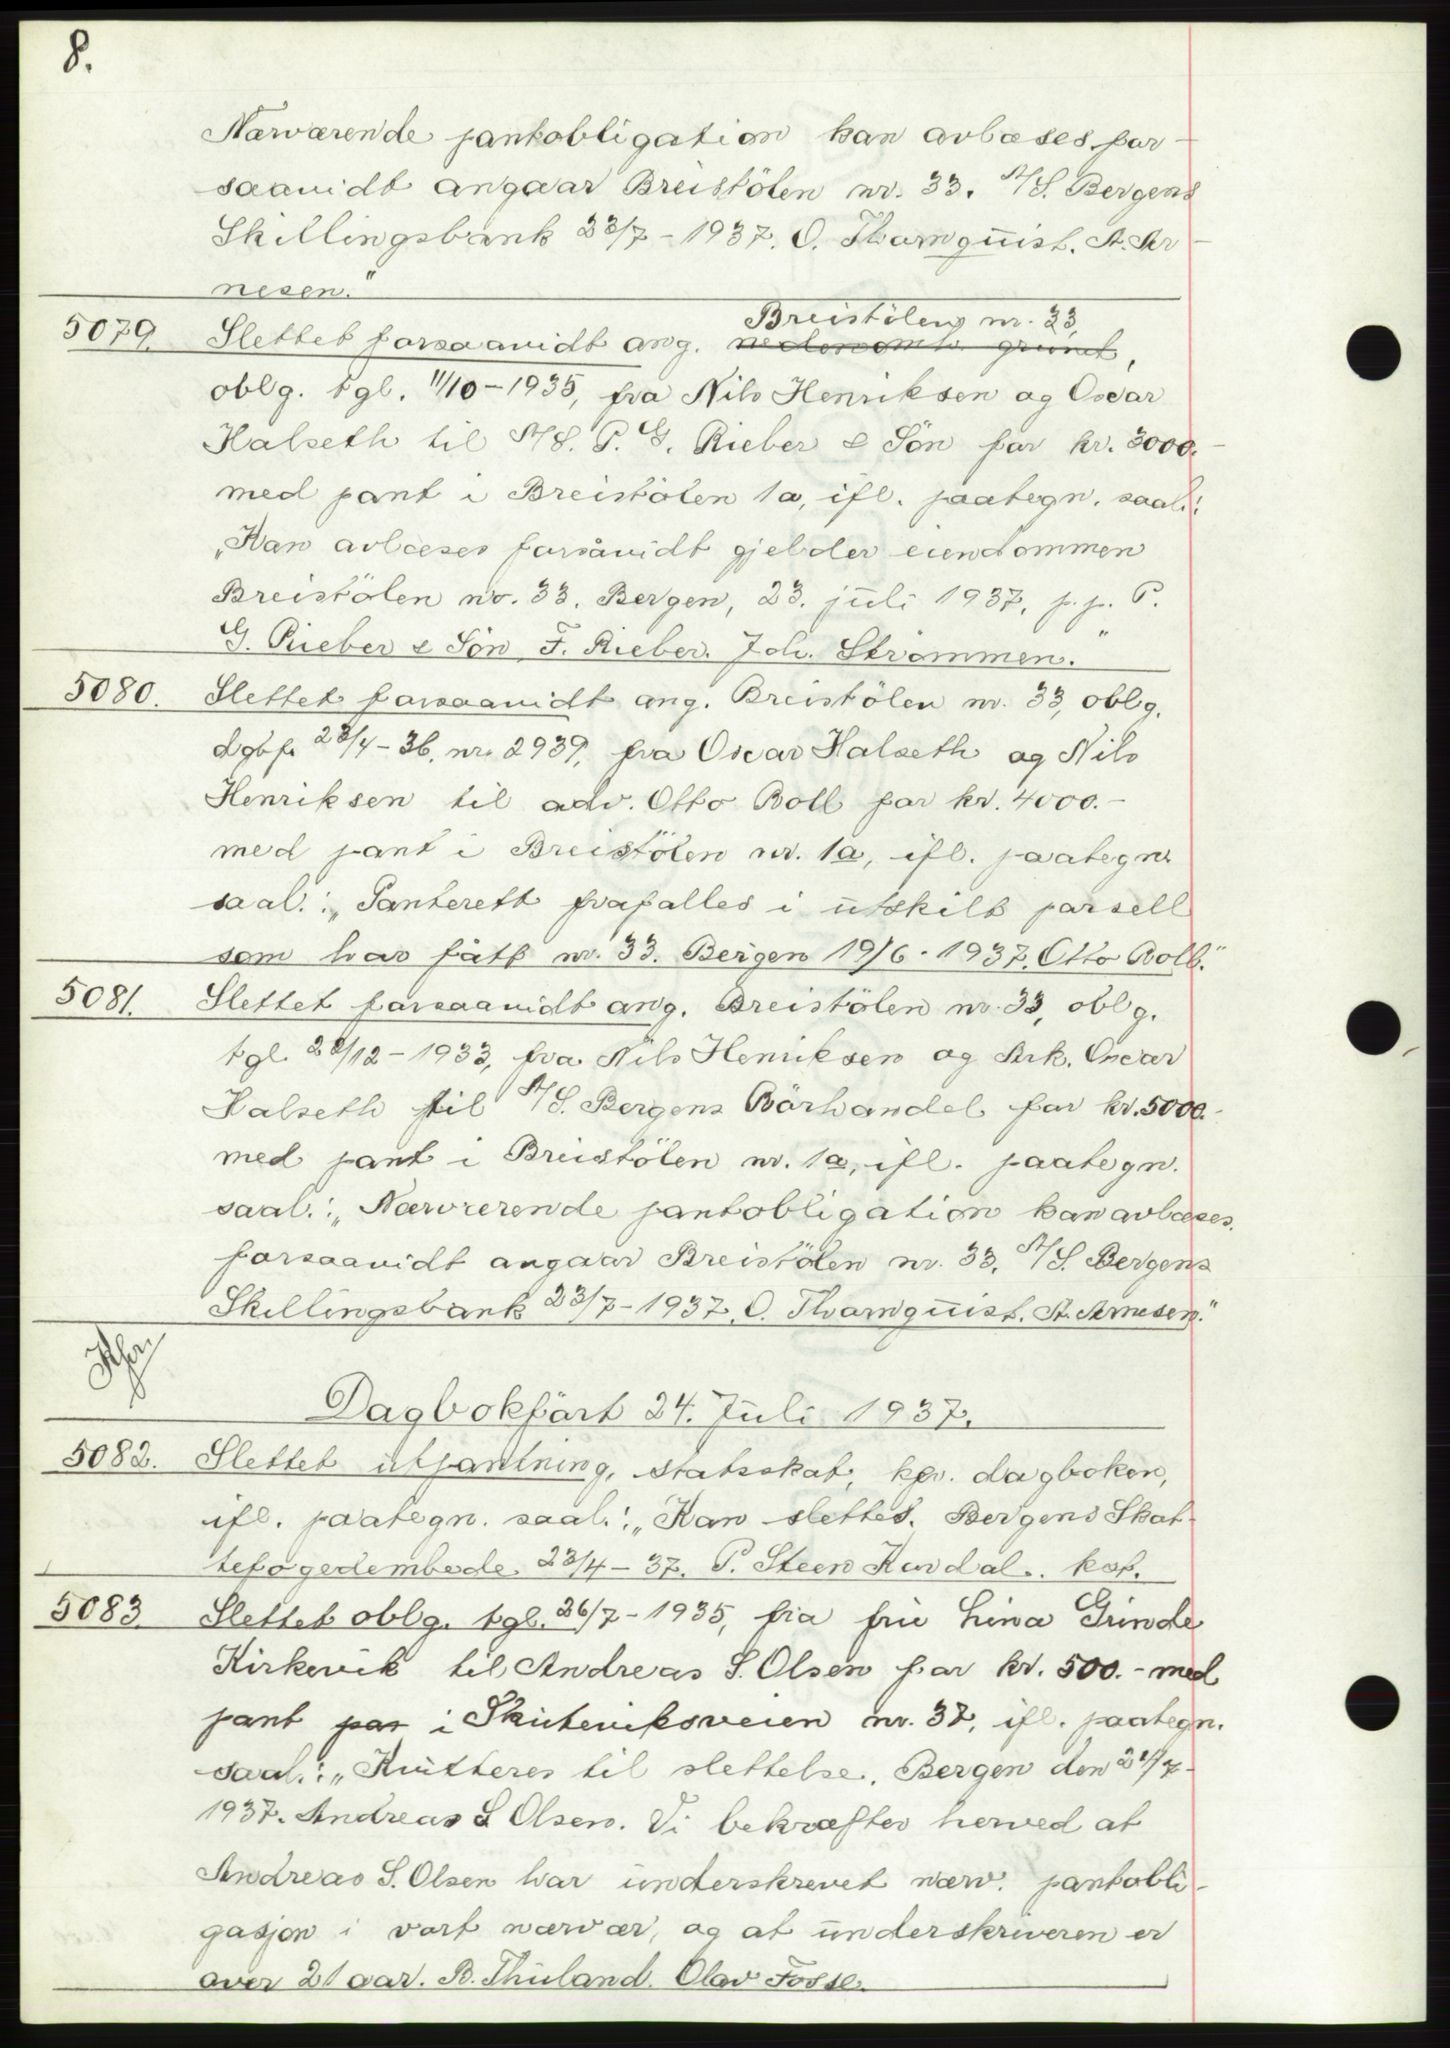 8.
Nærværende pantobligation kan avlæses for-
saavidt angaar Breistölen nr. 33. A/S. Bergens
Skillingsbank 23/7-1937. O. Thomquist. A. Ar-
nesen."
Breistölen nr. 33,
5079. Slettet forsaavidt ang. nedennevnte grunn,
oblg. tgl. 11/10-1935, fra Nils Henriksen og Oscar
Halseth til A/S. P. G. Rieber & Sön for kr. 3000.-
med pant i Breistölen 1a, ifl. paategn. saal:
"Kan avlæses forsåvidt gjelder eiendommen
Breistölen nr. 33. Bergen, 23. juli 1937, p. p. P.
G. Rieber & Sön F. Rieber. Joh. Strömmen."
5080. Slettet forsaavidt ang. Breistölen nr. 33, oblg.
dgbf. 23/4-36, nr. 2939, fra Oscar Halseth og Nils
Henriksen til adv. Otto Boll for kr. 4000.-
med pant i Breistölen nr. 1a, ifl. paategn.
saal.: "Panterett frafalles i utskilt parsell
som har fått nr. 33. Bergen 19/6-1937. Otto Boll."
5081. Slettet forsaavidt ang. Breistölen nr. 33, oblg.
tgl. 28/12-1933, fra Nils Henriksen og Ark. Oscar
Halseth til A/S. Bergens Rörhandel for kr. 5000.-
med pant i Breistölen nr. 1a, ifl. paategn.
saal.: "Nærværende pantobligation kan avlæses
forsaavidt angaar Breistölen nr. 33, A/S. Bergens
Skillingsbank 23/7-1937. O. Thomquist. A. Arnesen."
Dagbokfört 24. Juli 1937.
5082. Slettet utpantning, statsskat, hpv. dagboken,
ifl. paategn. saal.: "Kan slettes. Bergens Skat-
tefogedembede 23/4-37. P. Steen Kurdal. kst.
5083. Slettet oblg. tgl. 26/7-1935, fra fru Lina Grinde
Kirkevik til Andreas S. Olsen for kr. 500.- med
pant par i Skuteviksveien nr. 37, ifl. paategn.
saal.: "Kvitteres til slettelse. Bergen den 21/7-
1937. Andreas S Olsen. Vi bekræfter herved at
Andreas S. Olsen har underskrevet nærv. pantobli-
gasjon i vort nærvær, og at underskriveren er
over 21 aar. B. Thuland. Olav Fosse.